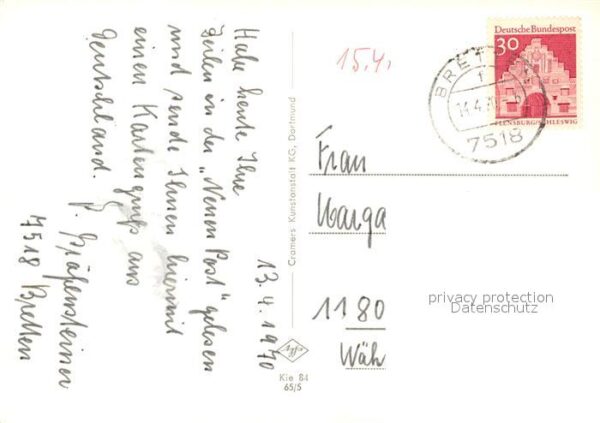 Habe heute Ihre
Zeilen in der „Neuen Post" gelesen
und sende Ihnen hiermit
einen Kartengruß aus
Deutschland.
13.4.1970
7518 Bretten
Cramers Kunstanstalt KG, Dortmund
Agfa
Kie 84
65/5
15.4.
Deutsche Bundespost
30
FLENSBURG/SCHLESWIG
BRETT
14.4.70
7518
Frau
Marga
1180
privacy protection
Datenschutz